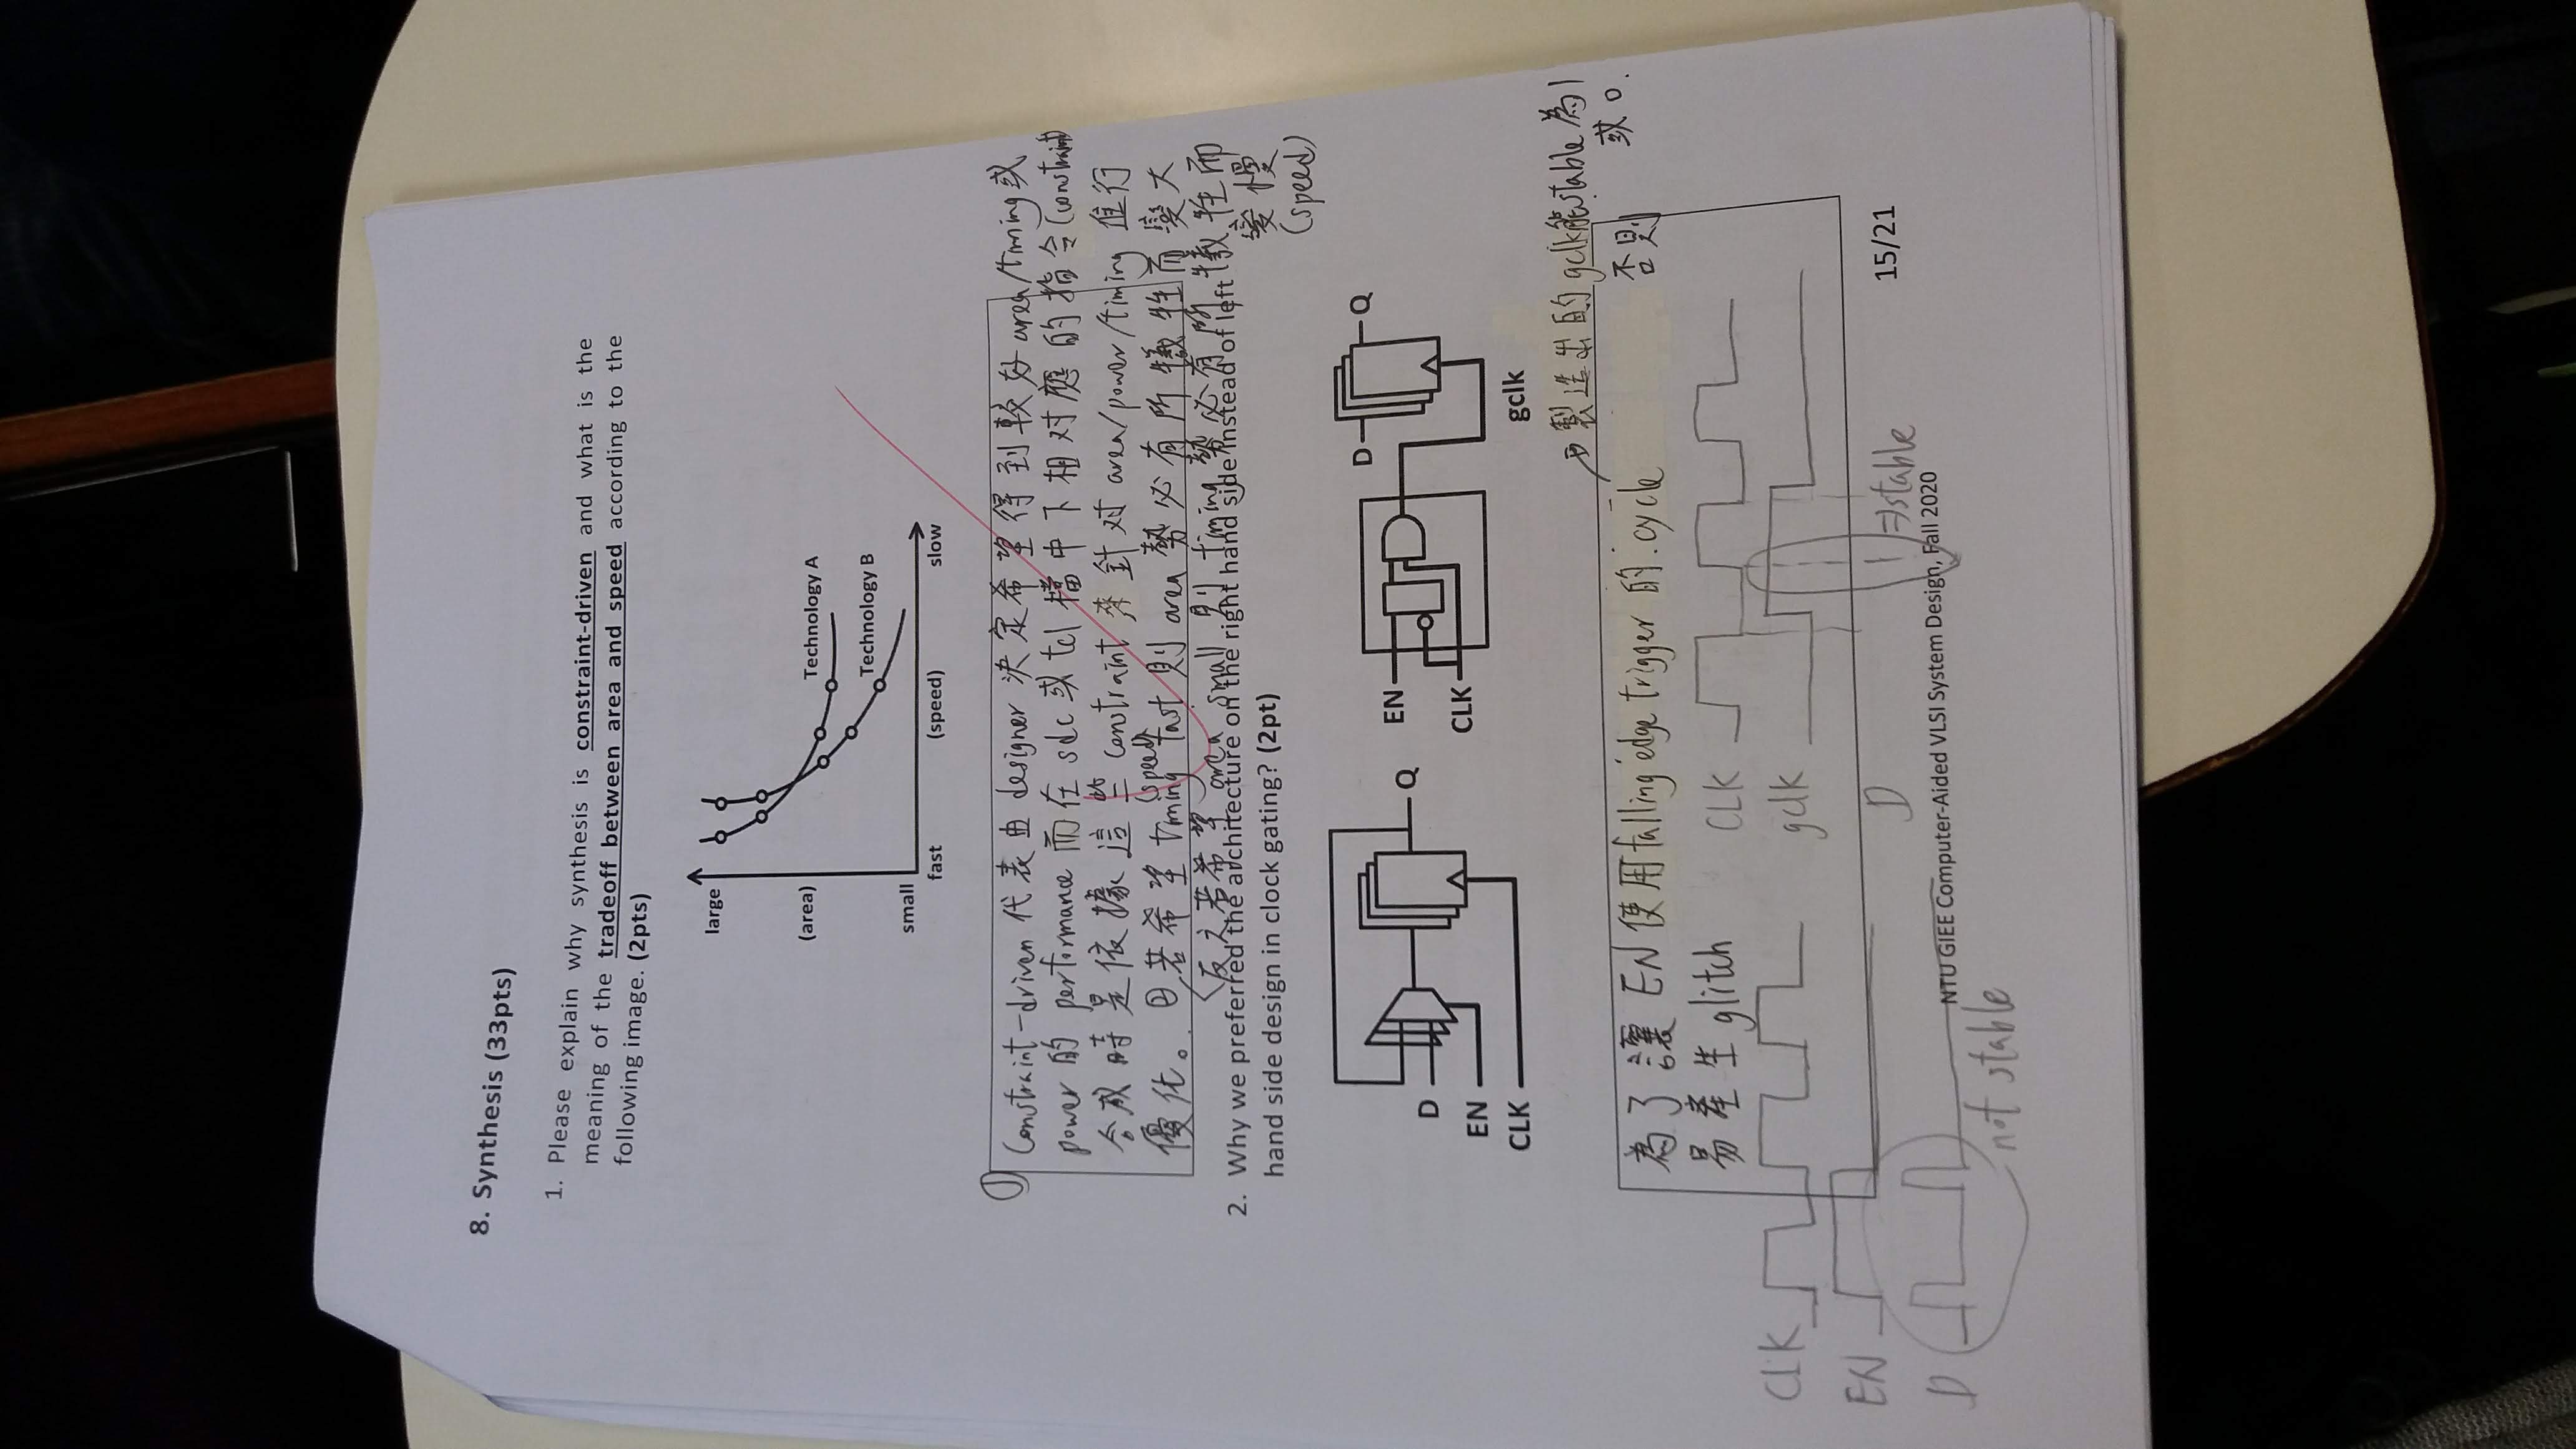 8. Synthesis (33pts)
1. Please explain why synthesis is constraint-driven and what is the
meaning of the tradeoff between area and speed according to the
following image. (2pts)
large
(area)
Technology A
Technology B
small
fast
(speed)
slow
① Constraint-driven 代表由 designer 決定希望得到較好 area/timing 或
power 的 performance 而在 sdc 或 tcl 檔中下相对應的指令(constraint)
合成時是依據這些 constraint 來針対 area/power/timing 進行
優化。 ②若希望 timing (speed) fast 則 area 勢必有所犧牲而變大
反之若希望 area small 則 timing 勢必有所犧牲而
變慢
(speed)
2. Why we preferred the architecture on the right hand side instead of left
hand side design in clock gating? (2pt)
D
EN
CLK
Q
EN
CLK
D
Q
gclk
製造出的 gclk能stable 為1
或0.
為了讓 EN 使用 falling edge trigger 的 cycle
否則
易產生 glitch
CLK
gclk
D
1 ⇒stable
CLK
EN
D
not stable
15/21
NTU GIEE Computer-Aided VLSI System Design, Fall 2020